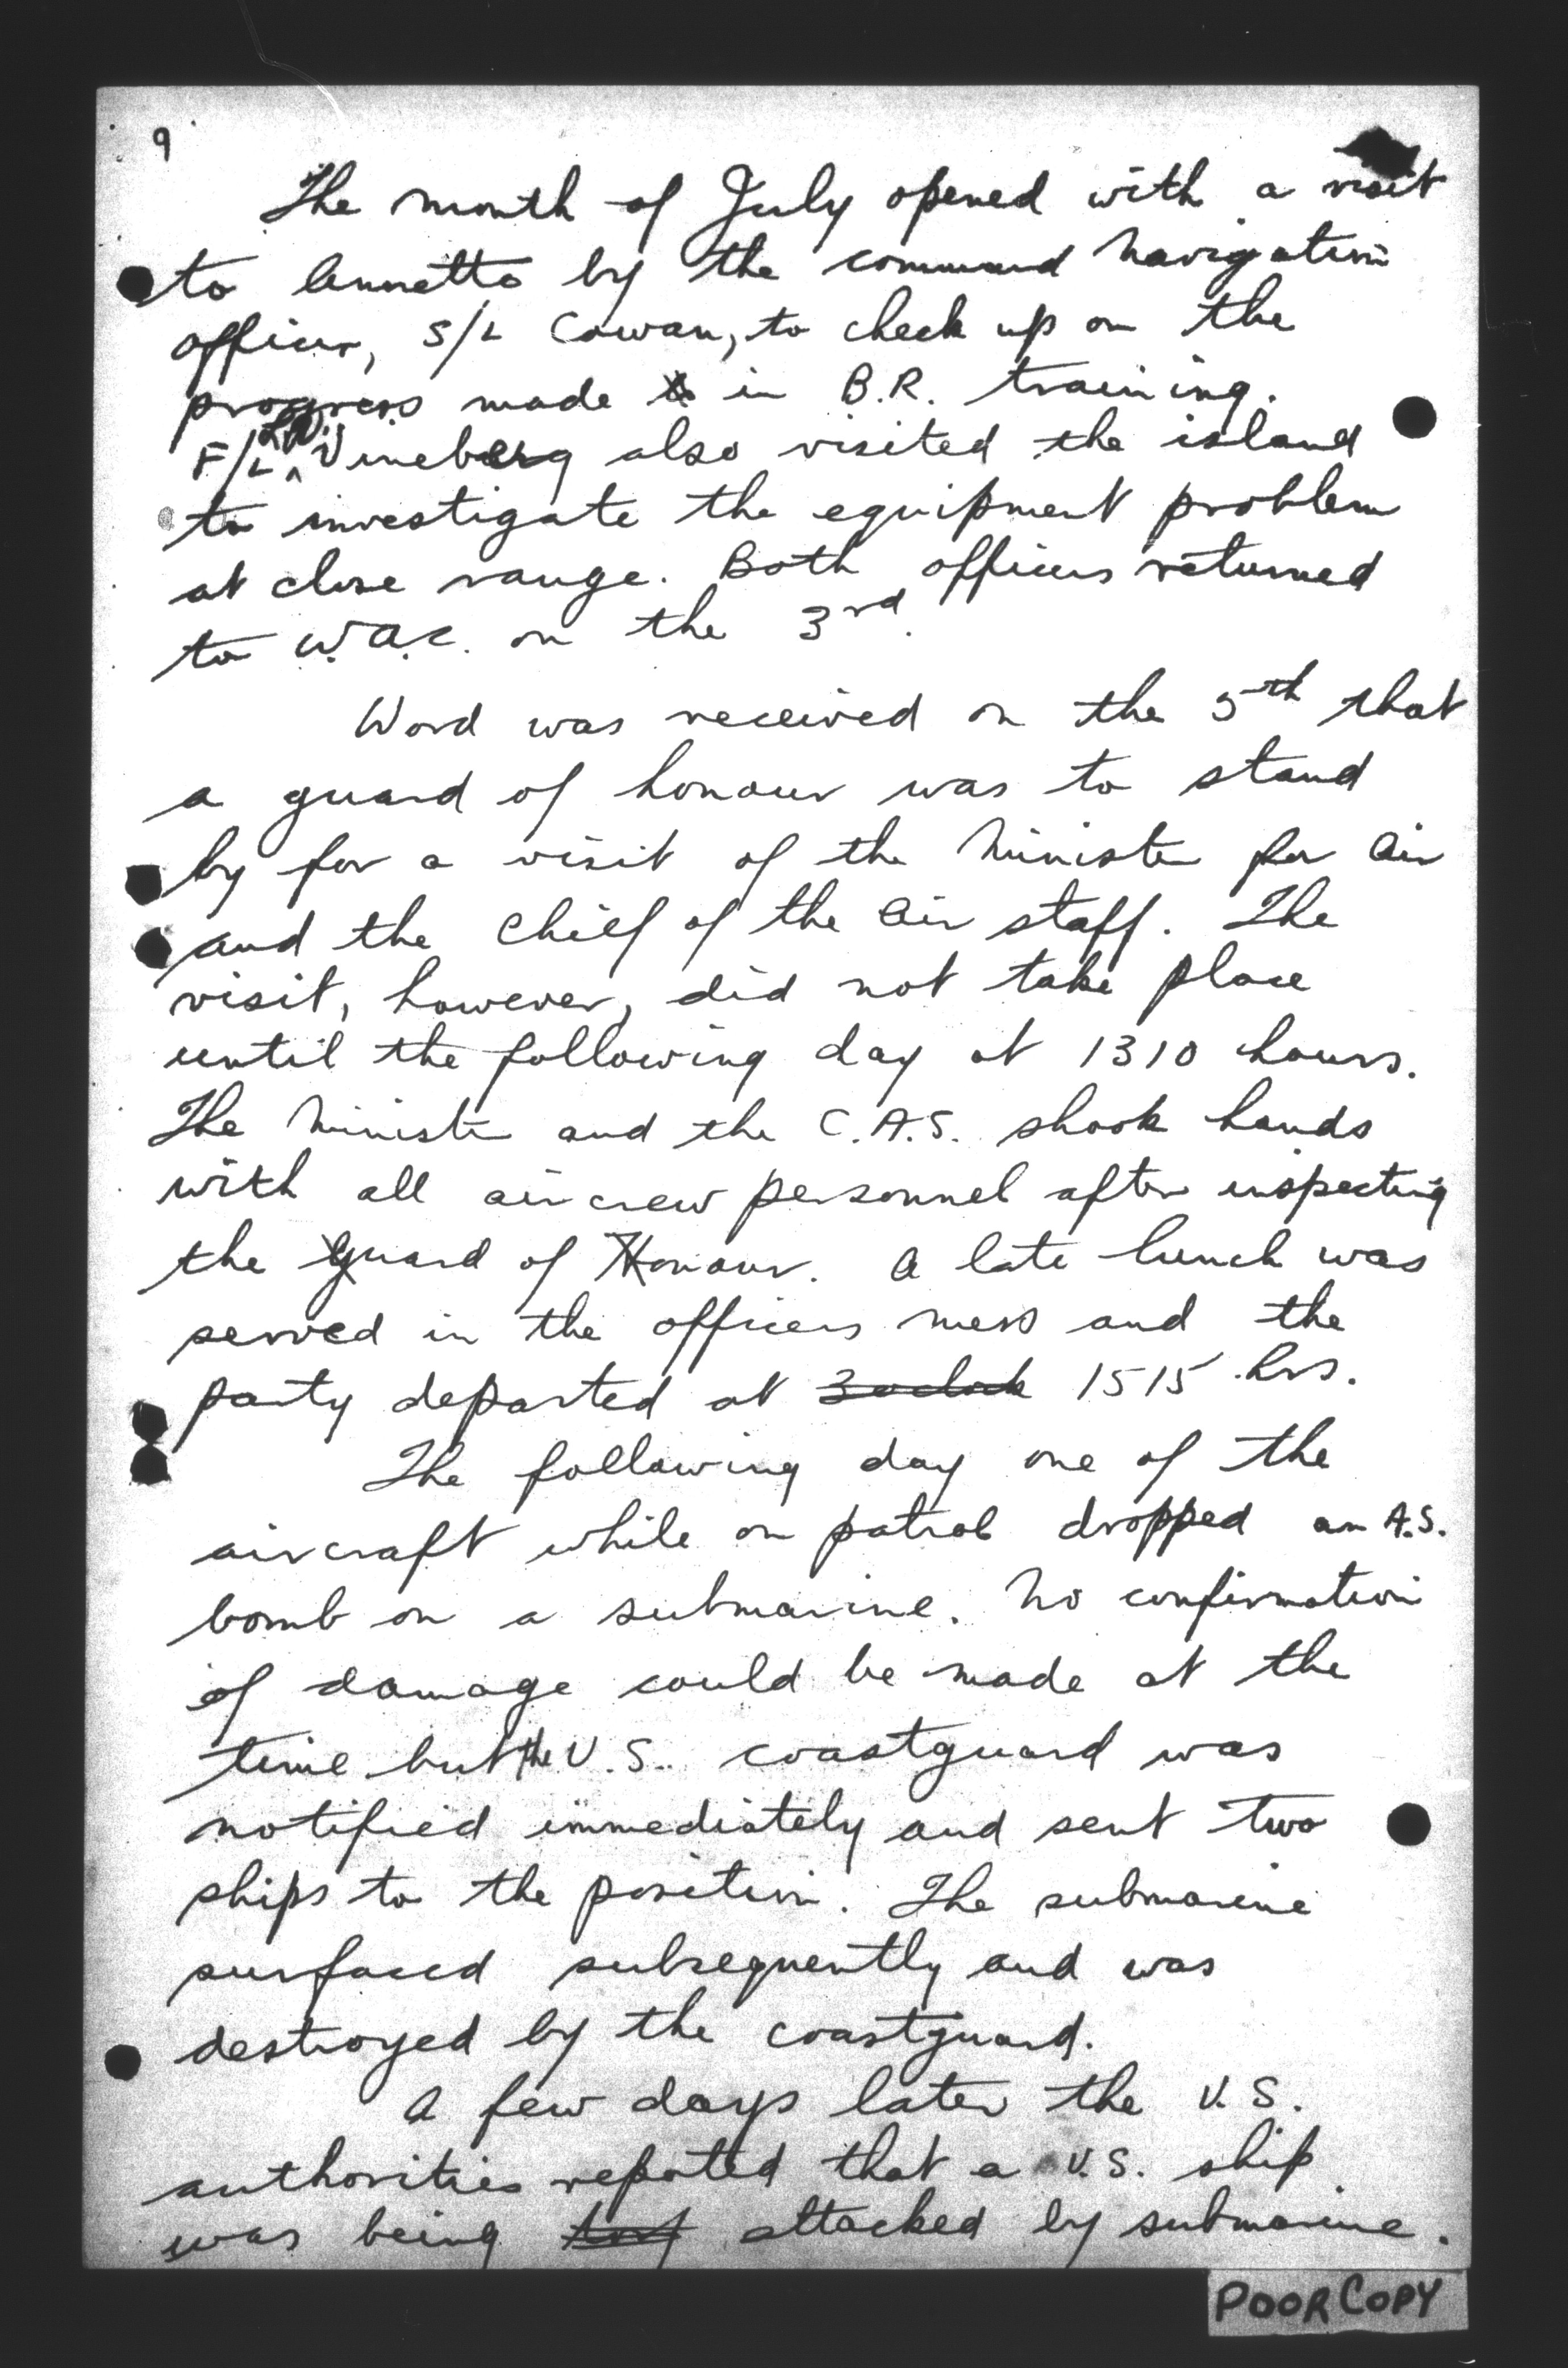 9
The month of July opened with a visit
to Annette by the command Navigation
officer, S/L Cowan, to check up on the
progress made in B.R. training.
F/L Vineberg also visited the island
to investigate the equipment problem
at close range. Both officers returned
to W.A.C. on the 3rd.
Word was received on the 5th that
a guard of honour was to stand
by for a visit of the Minister for Air
and the Chief of the Air Staff. The
visit, however, did not take place
until the following day at 1310 hours.
The Minister and the C.A.S. shook hands
with all aircrew personnel after inspecting
the guard of Honour. A late lunch was
served in the officers mess and the
party departed at 3 oclock 1515 hrs.
The following day one of the
aircraft while on patrol dropped an A.S.
bomb on a submarine. No confirmation
of damage could be made at the
time but the U.S. coastguard was
notified immediately and sent two
ships to the position. The submarine
surfaced subsequently and was
destroyed by the coastguard.
A few days later the U.S.
authorities reported that a U.S. ship
was being attacked by submarine.
POOR COPY